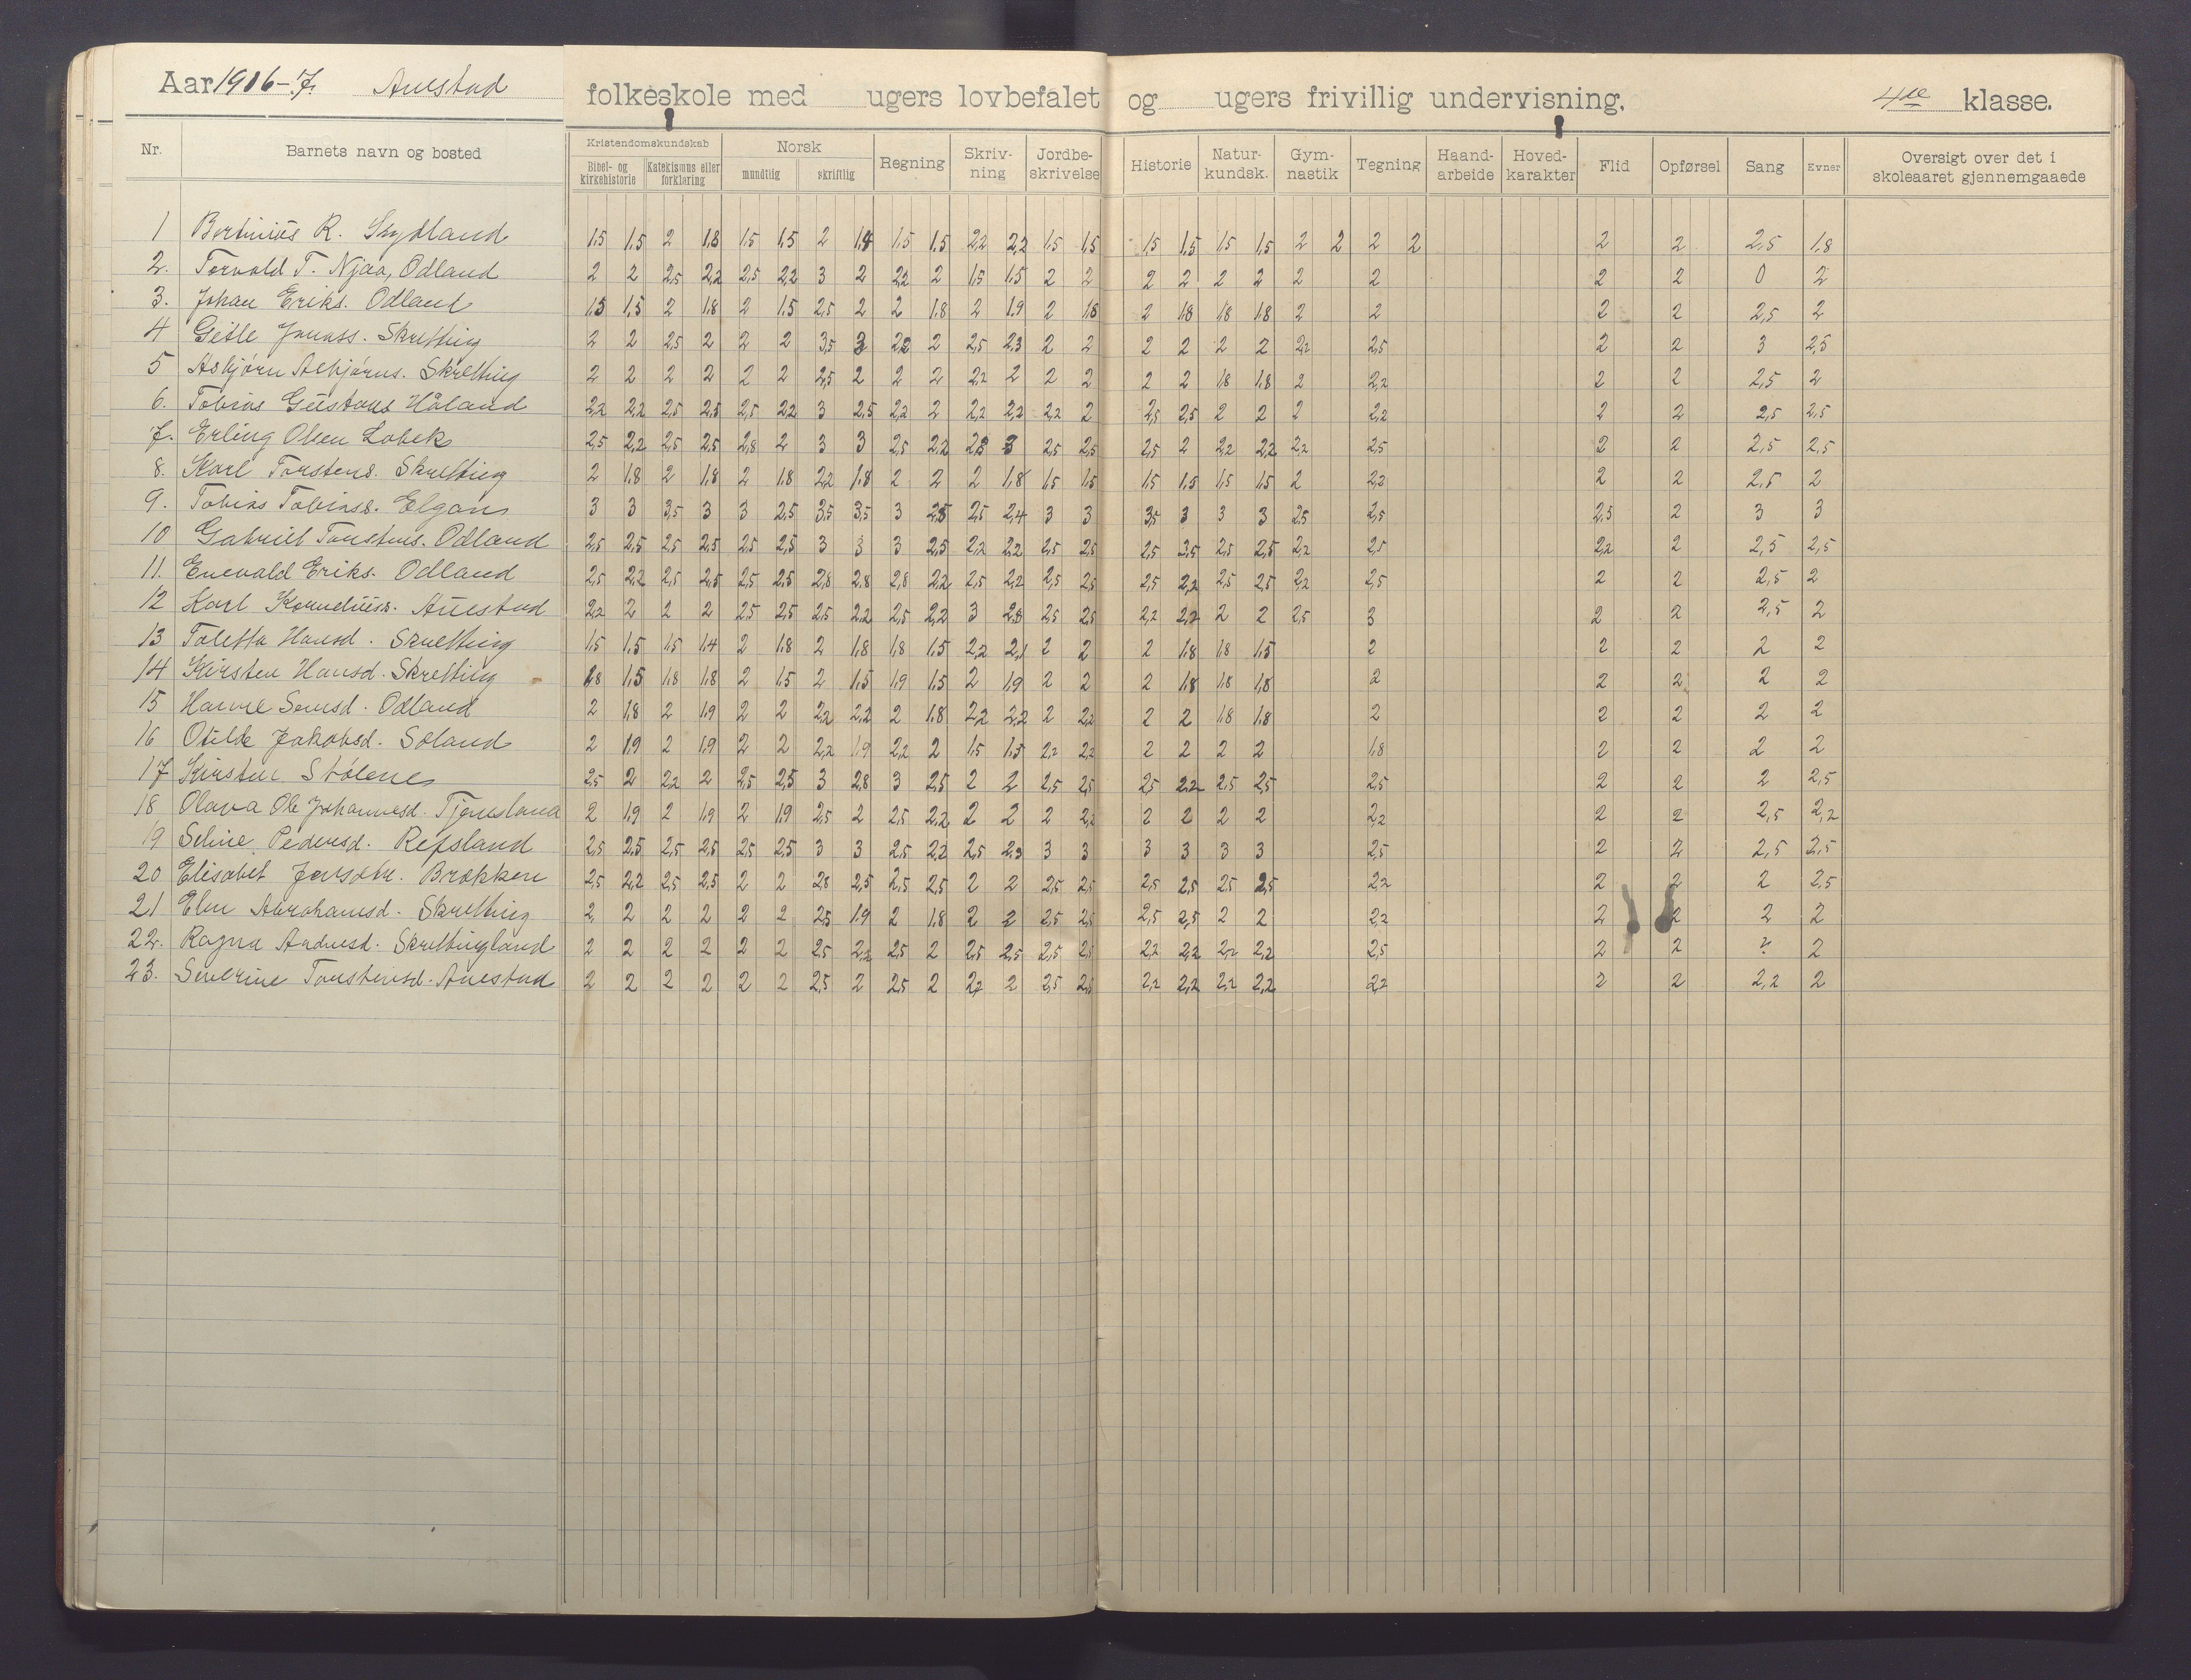 Aar 1906-7. Auestad folkeskole med ugers lovbefalet og ugers frivillig undervisning. 4de klasse.
Nr. Barnets navn og bosted Kristendomskundskab Bibel- og kirkehistorie Katekismus eller forklaring Norsk mundtlig skriftlig Regning Skriv-ning Jordbe-skrivelse Historie Natur-kundsk. Gym-nastik Tegning Haand-arbeide Hoved-karakter Flid Opførsel Sang Evner Oversigt over det i skoleaaret gjennemgaaede
1 Bertinius R. 1,5 1,5 2 1,8 1,5 1,5 2 1,8 1,5 1,5 2,2 2,2 1,5 1,5 1,5 1,5 1,5 1,5 2 2 2 2 2 2 2,5 1,8
2. Torvald T. Njaa, Odland 2 2 2,5 2,2 2,5 2,2 3 2 2,2 2 1,5 1,5 2 2 2 2 2 2 2 2 2 2 0 2
3. Johan Eriks. Odland 1,5 1,5 2 1,8 2 1,5 2,5 2 2 1,8 2 1,9 2 1,8 2 1,8 1,8 1,8 2 2 2 2 2,5 2
4 Gitle Jonass. Skretting 2 2 2,5 2 2 2 3,5 3 2,2 2 2,5 2,3 2 2 2 2 2 2 2,2 2,5 2 2 3 2,5
5 Asbjørn Asbjørns. Skretting 2 2 2 2 2 2 2,5 2 2 2 2,2 2 2 2 2 2 1,8 1,8 2 2,2 2 2 2,5 2
6. Tobias Gustavs Håland 2,2 2,2 2,5 2,5 2,5 2,2 3 2,5 2,2 2 2,2 2,2 2,2 2 2,5 2,5 2 2 2 2,2 2 2 2,5 2,5
7. Erling Olsen Lobek 2,5 2,2 2,5 2,5 2,8 2 3 3 2,5 2,2 2,8 3 2,5 2,5 2,5 2 2,2 2,2 2,2 2,5 2 2 2,5 2,5
8. Karl Torstens. Skretting 2 1,8 2 1,8 2 1,8 2,2 1,8 2 2 2 1,8 1,5 1,5 1,5 1,5 1,5 1,5 2 2,2 2 2 2,5 2
9. Tobias Tobiass. Elgan 3 3 3,5 3 3 2,5 3,5 3,5 3 2,5 2,5 2,4 3 3 3,5 3 3 3 2,5 2,5 2,5 2 3 3
10 Gabriel Tonstens. Odland 2,5 2,5 2,5 2,5 2,5 2,5 3 3 3 2,5 2,2 2,2 2,5 2,5 2,5 2,5 2,5 2,5 2,2 2,5 2,2 2 2,5 2,5
11. Enevald Eriks. Odland 2,5 2,2 2,5 2,5 2,5 2,5 2,8 2,8 2,8 2,2 2,5 2,2 2,5 2,5 2,5 2,2 2,5 2,5 2,2 2,5 2 2 2,5 2
12 Karl Korneliuss. Auestad 2,2 2 2 2 2,5 2,5 2,5 2,2 2,5 2,2 3 2,8 2,5 2,5 2,2 2,2 2 2 2,5 3 2 2 2,5 2
13 Taletta Hansd. Skretting 1,5 1,5 1,5 1,4 2 1,8 2 1,8 1,8 1,5 2,2 2,1 2 2 2 1,8 1,8 1,5 2 2 2 2 2
14 Kirsten Hansd. Skretting 1,8 1,5 1,8 1,8 2 1,5 2 1,5 1,9 1,5 2 1,9 2 2 2 1,8 1,8 1,8 2 2 2 2 2
15 Hanne Odland 2 1,8 2 1,9 2 2 2,2 2,2 2 1,8 2,2 2,2 2 2,2 2 2 1,8 1,8 2 2 2 2 2
16 Otilde Jakobsd. Soland 2 1,9 2 1,9 2 2 2,2 1,9 2,2 2 1,5 1,5 2,2 2,2 2 2 2 2 1,8 2 2 2 2
17 Kirsten Stølene 2,5 2 2,2 2 2,5 2,5 3 2,8 3 2,5 2 2 2,5 2,5 2,5 2,2 2,5 2,5 2,5 2 2 2 2,5
18 Olava Ole Johannesd. Tjensland 2 1,9 2 1,9 2 1,9 2,5 2 2,5 2,2 2 2 2 2,2 2 2 2 2 2,2 2 2 2,5 2,2
19 Seline Pedersd. Refsland 2,5 2,5 2,5 2,5 2,5 2,5 3 3 2,5 2,2 2,5 2,3 3 3 3 3 3 3 2,5 2 2 2,5 2,5
20 Elisabet Jensdtr. Brækken 2,5 2,2 2,5 2,5 2 2 2,8 2,5 2,5 2,5 2 2 2,5 2,5 2,5 2,5 2,5 2,5 2,2 2 2 2 2,5
21 Elen Abrahamsd. Skretting 2 2 2 2 2 2 2,5 1,9 2 1,8 2 2 2,5 2,5 2,5 2,5 2 2 2,2 2 2 2 2
22. Ragna Andresd. Skrettingland 2 2 2 2 2 2 2,5 2,2 2,5 2 2,5 2,5 2,5 2,5 2,2 2,2 2,2 2,2 2,5 2 2 2 2
23. Severine Tonstensd. Auestad 2 2 2 2 2 2 2,5 2 2,5 2 2,2 2 2,5 2,5 2,2 2,2 2,2 2,2 2,2 2 2 2,2 2